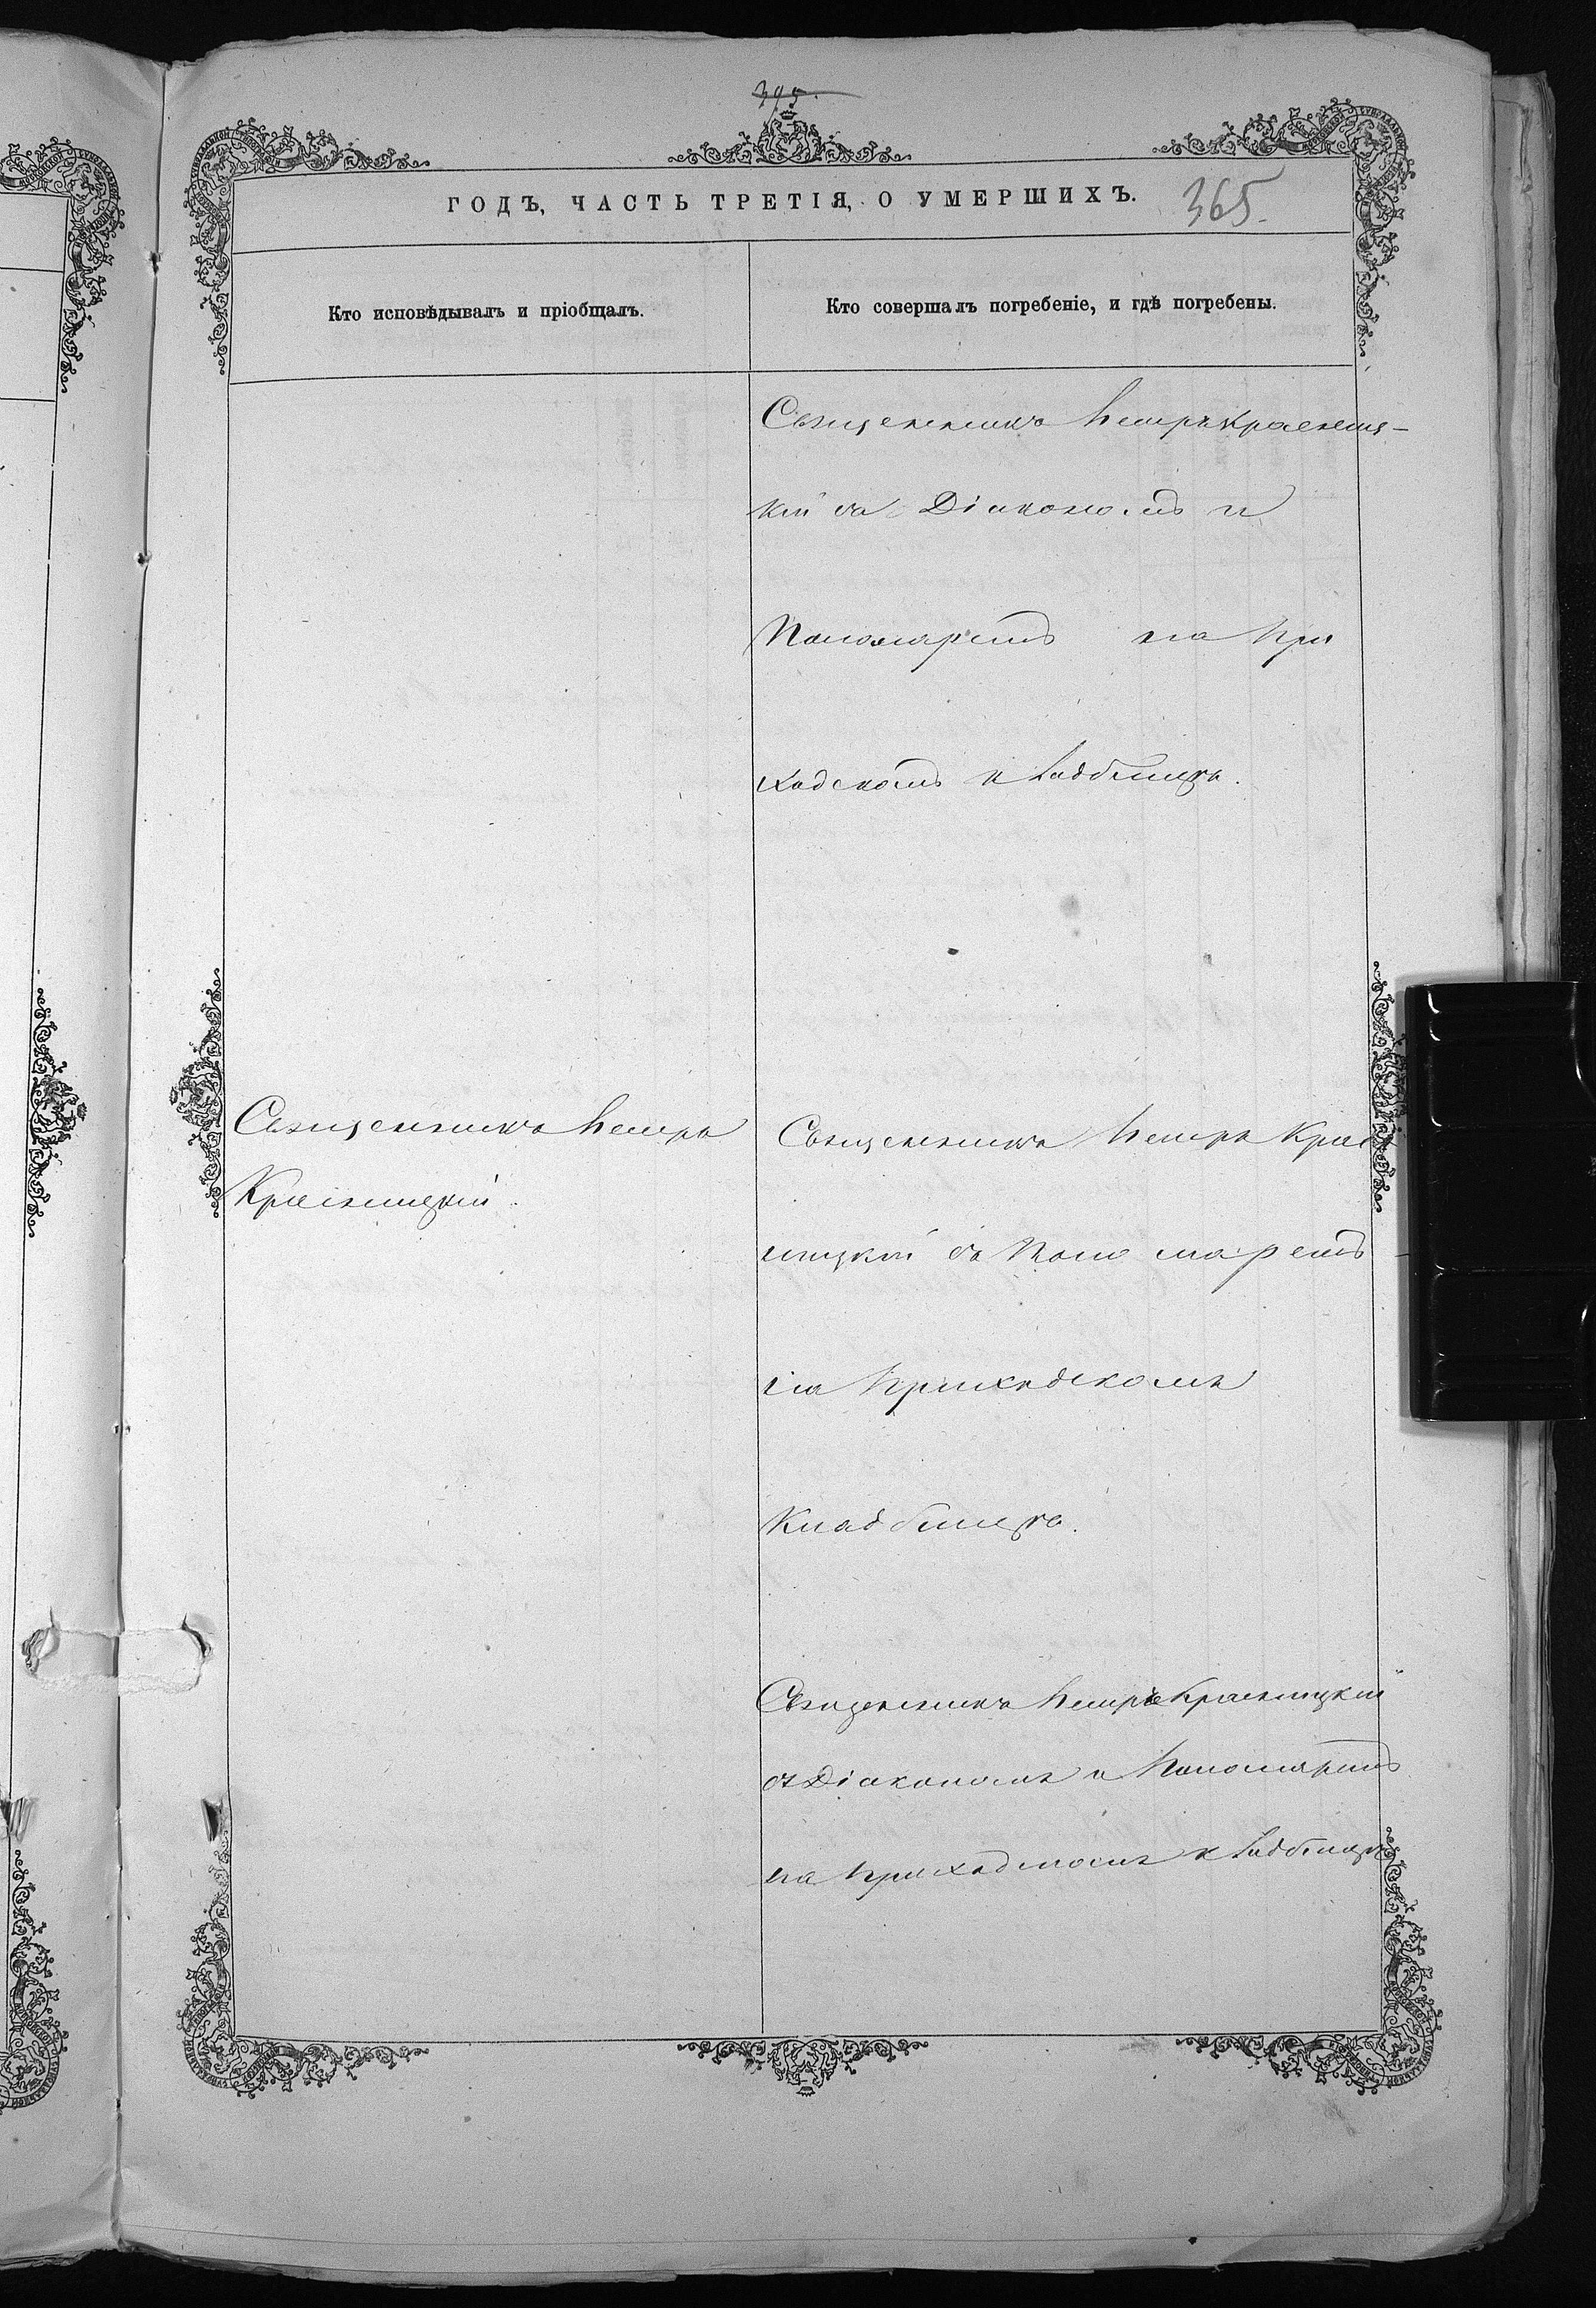 395.
ГОДЪ, ЧАСТЬ ТРЕТІЯ, О УМЕРШИХЪ. 365.
Кто исповѣдывалъ и пріобщалъ.
Кто совершалъ погребеніе, и гдѣ погребены.
Священникъ Петръ Красниц-
кій съ Діакономъ и
Пономаремъ на При
ходскомъ кладбищѣ.
Священникъ Петръ
Красницкій.
Священникъ Петръ Крас
ницкій съ Поно маремъ
на Приходскомъ
Кладбищѣ.
Священникъ Петръ Красницкій
съ Діакономъ и Пономаремъ
на Приходскомъ кладбищѣ